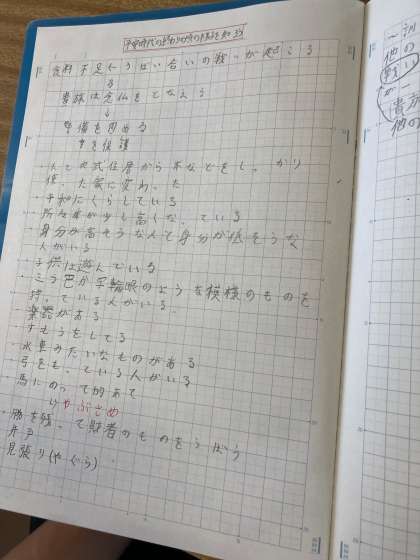 平安時代の終わり頃の様子を知ろう
食料不足 うばい合いの戦いが起こる
↓
貴族は念仏をとなえる
↓
警備を固める
を保護
・たて穴式住居から木などをし、かり
た家に変わった
・平和にくらしている
・所々床が少し高くなっている
・身分が高そうな人と身分が低そうな
人がいる
・子供は遊んでいる
・三つ巴か平輪眼のような模様のものを
持っている人がいる。
楽器がある
すもうをしてる
・水車みたいなものがある
・弓をもっている人がいる
・馬にのって的あて
けやぶさめ
・勝を残って財者のものをうばう
井戸
見張り(やぐら)
一訓
他の
戦い
が一
貴族
他の